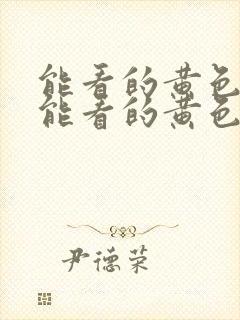 能看的黄色
能看的黄色
尹德荣